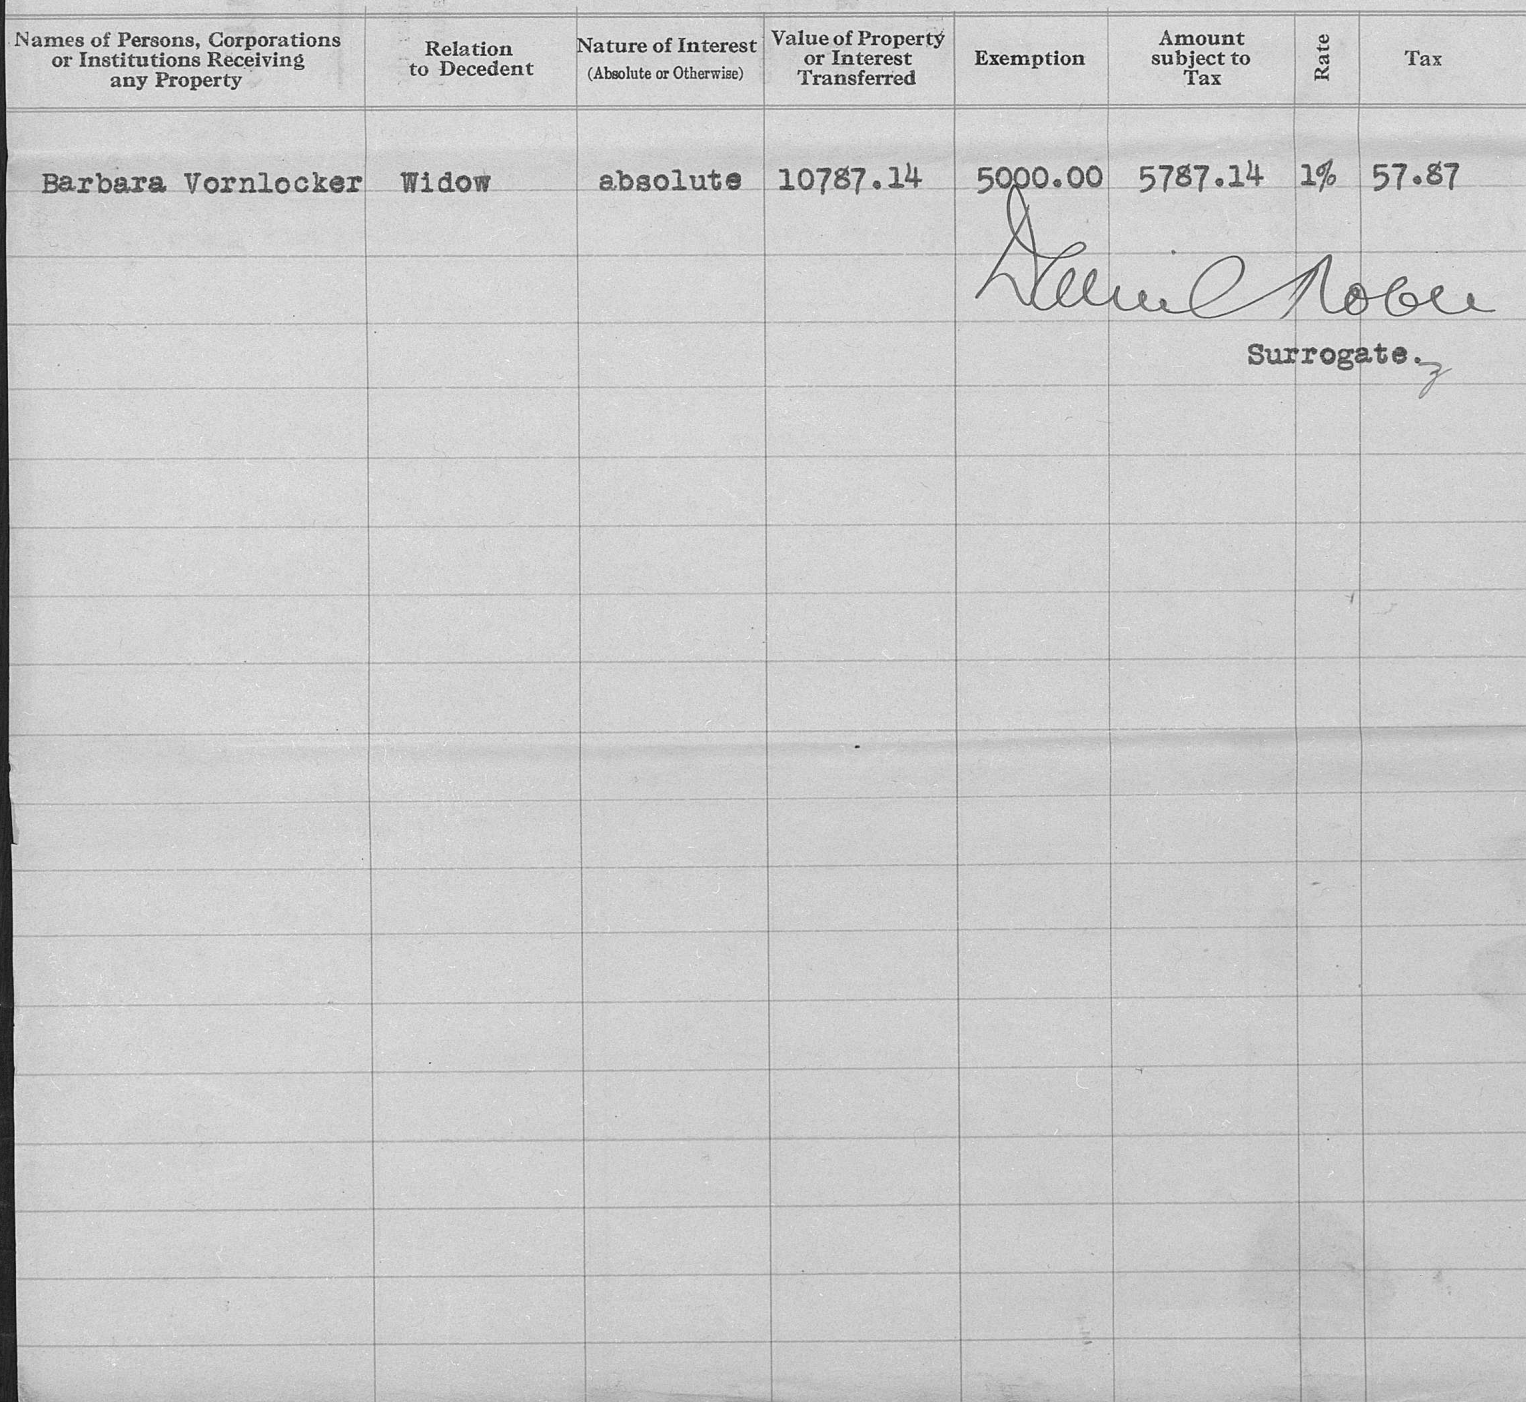 Names of Persons, Corporations
or Institutions Receiving
any Property
Relation
to Decedent
Nature of Interest
(Absolute or Otherwise)
Value of Property
or Interest
Transferred
Exemption
Amount
subject to
Tax
Rate
Tax
Barbara Vornlocker Widow absolute 10787.14 5000.00 5787.14 1% 57.87
Surrogate.